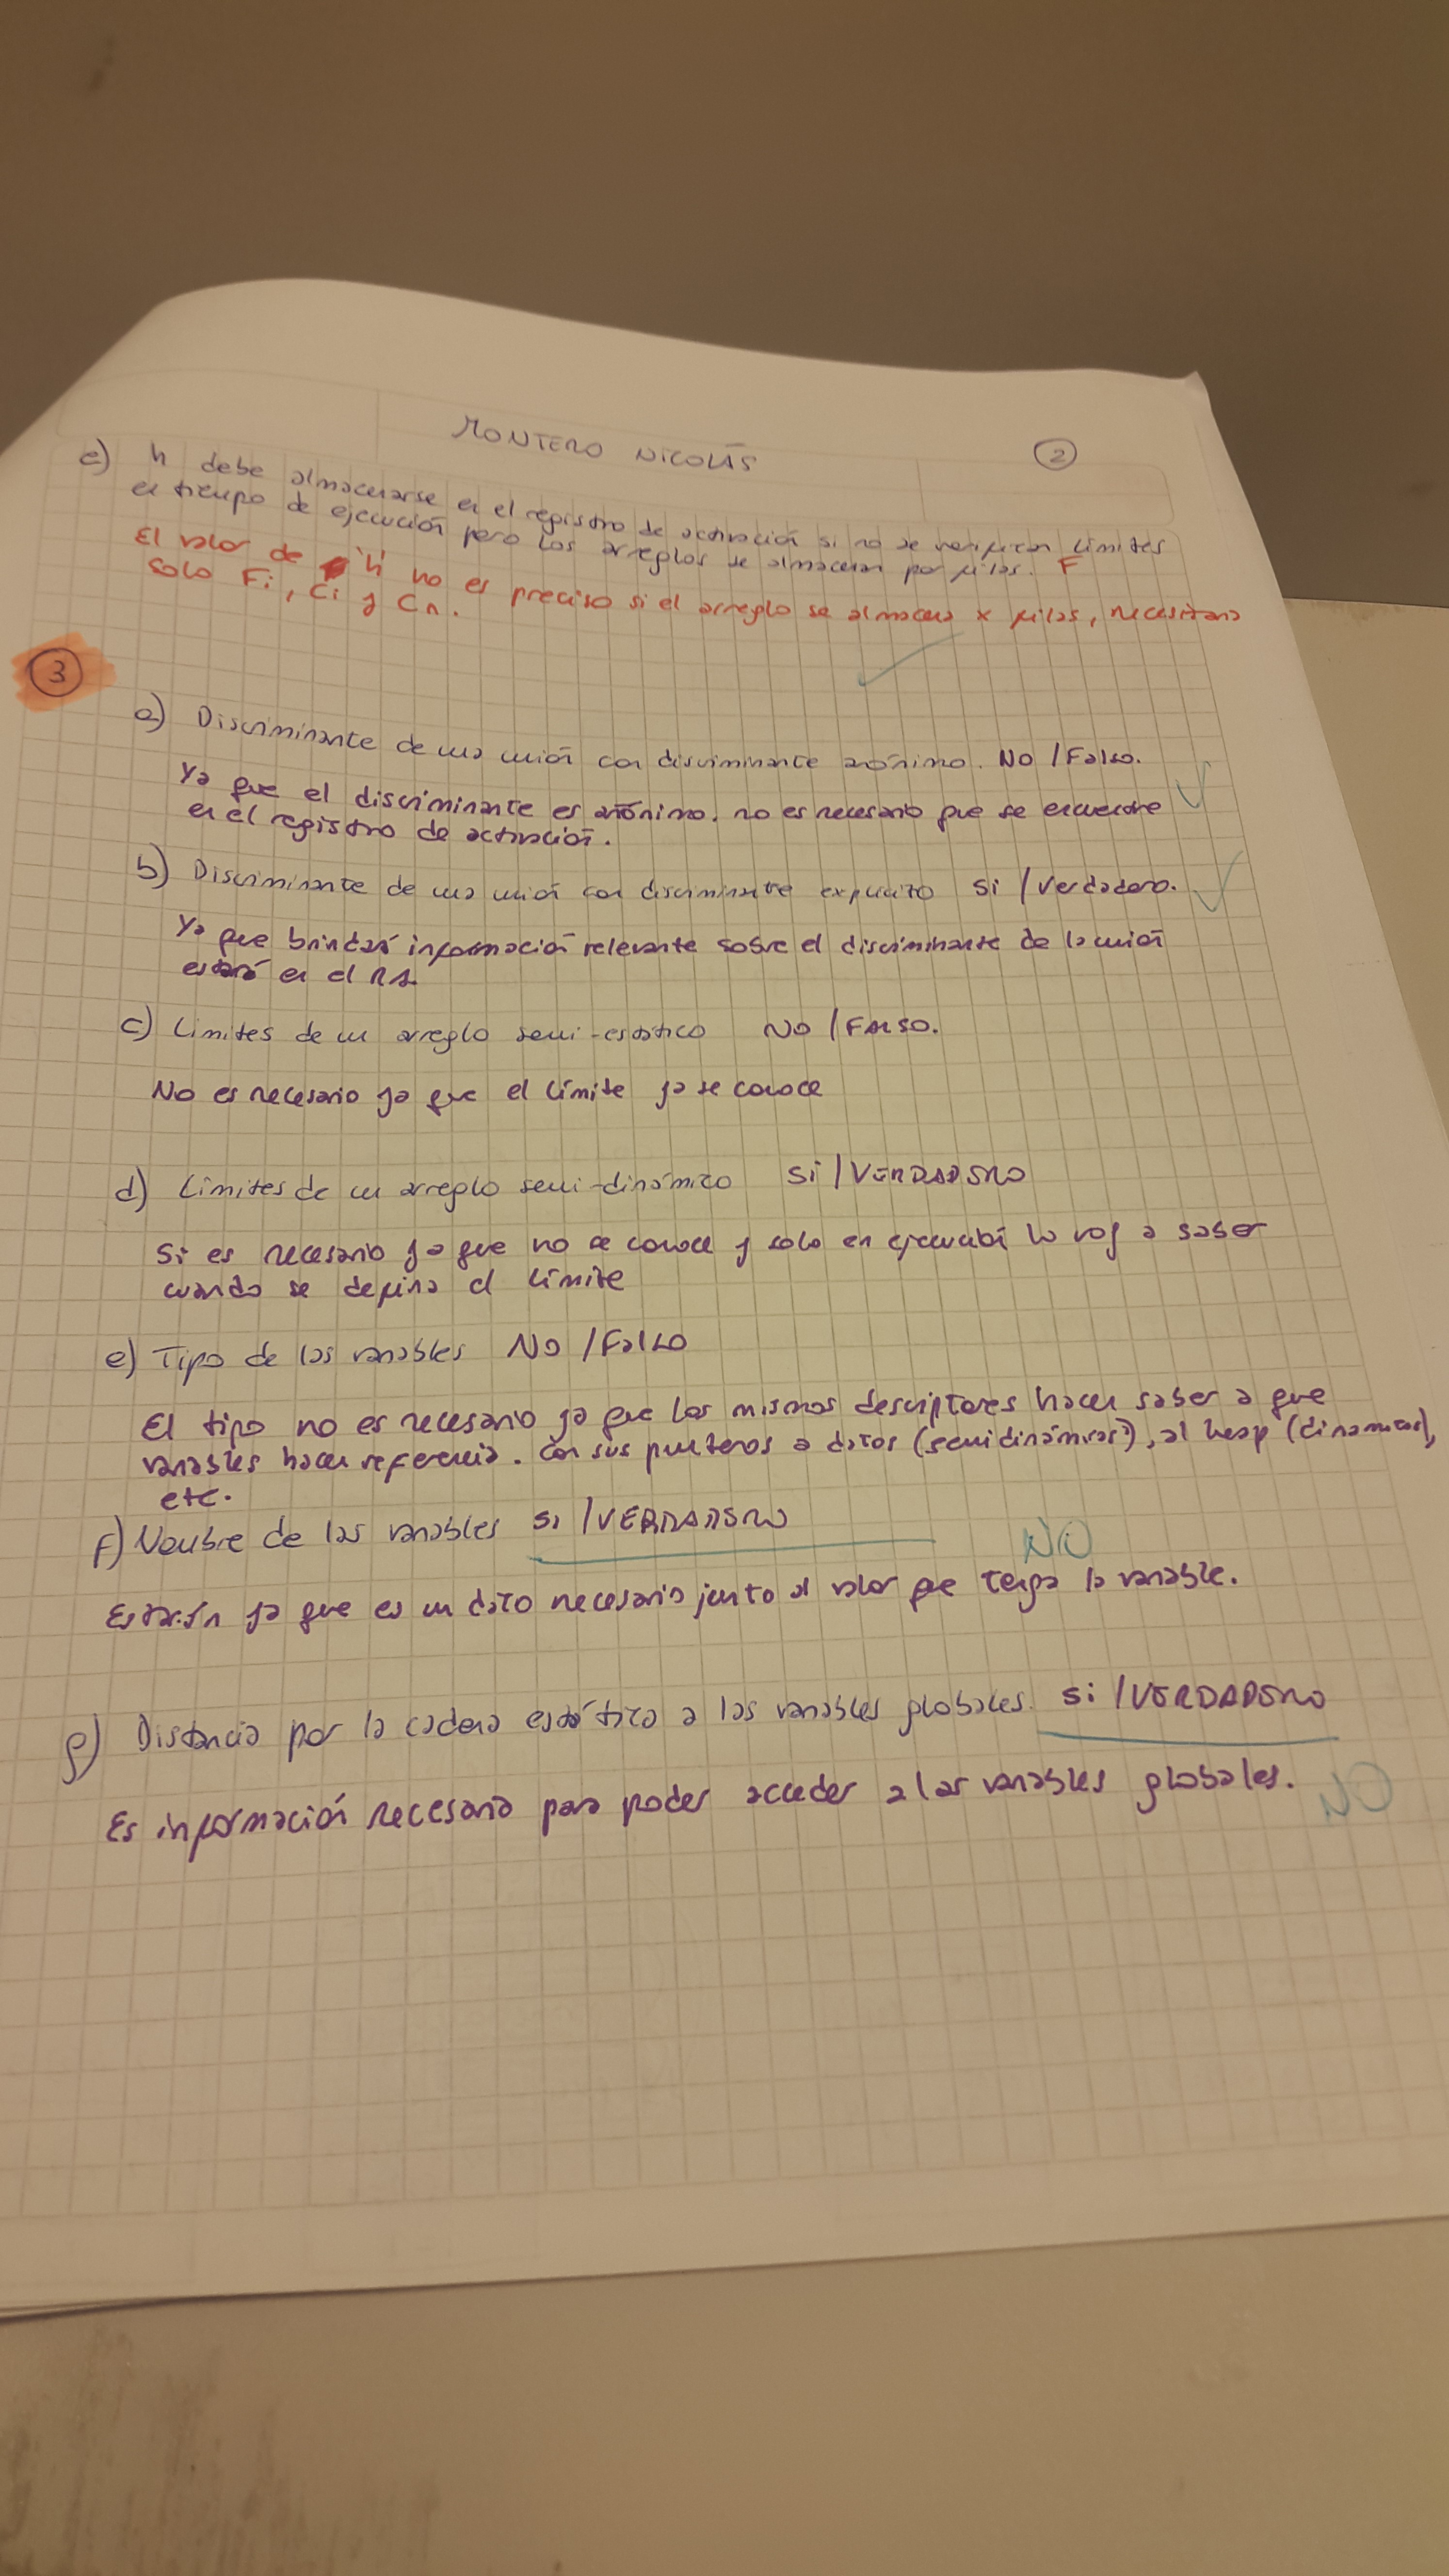 MONTERO NICOLÁS
2
e) h debe almacenarse en el registro de activación si no se verifican límites
en tiempo de ejecución pero los arreglos se almacenan por filas. F
El valor de 'h' no es preciso si el arreglo se almacena x filas, necesitamos
solo Fi, Ci y Cn.
3
a) Discriminante de una unión con discriminante anónimo. NO / Falso.
Ya que el discriminante es anónimo, no es necesario que se encuentre
en el registro de activación.
b) Discriminante de una unión con discriminante explicito Si / Verdadero.
Ya que brindará información relevante sobre el discriminante de la unión
estará en el RA
c) Limites de un arreglo semi-estático NO / FALSO.
No es necesario ya que el límite ya se conoce
d) Límites de un arreglo semi-dinámico Si / VERDADERO
Si es necesario ya que no se conoce y solo en lo voy a saber
cuando se defina el límite
e) Tipo de las variables NO / Falso
El tipo no es necesario ya que los mismos descriptores hacen saber a que
variables hacen referencia. Con sus punteros a datos (semidinámicos), al heap (dinamicos),
etc.
f) Nombre de las variables Si / VERDADERO
NO
Estarán ya que es un dato necesario junto al valor que tenga la variable.
g) Distancia por la cadena estática a las variables globales. Si / VERDADERO
Es información necesaria para poder acceder a las variables globales.
NO